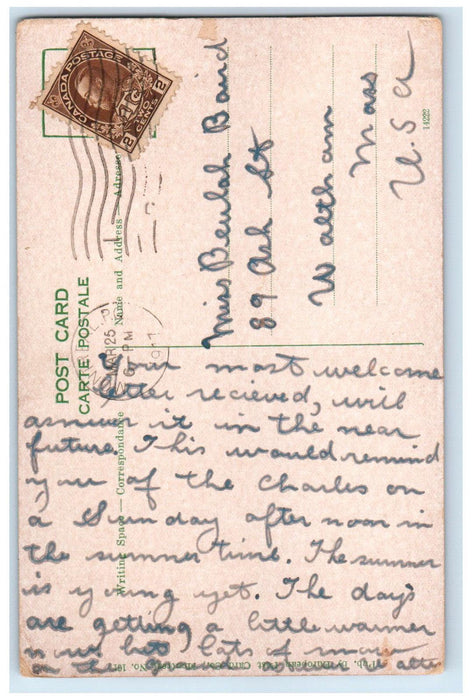 CANADA POSTAGE
2 CENTS 2
POST CARD
CARTE POSTALE
MAR 25
6 PM
Name and Address — Adresse
Writing Space — Correspondance
14222
Miss Beulah Baird
89 Ash St
Waltham
Mass
U.S.A
Your most welcome
letter recieved, will
answer it in the near
future. This would remind
you of the Charles on
a Sunday after noon in
the summer time. The summer
is young yet. The days
are getting a little warmer
now but lots of snow
on the